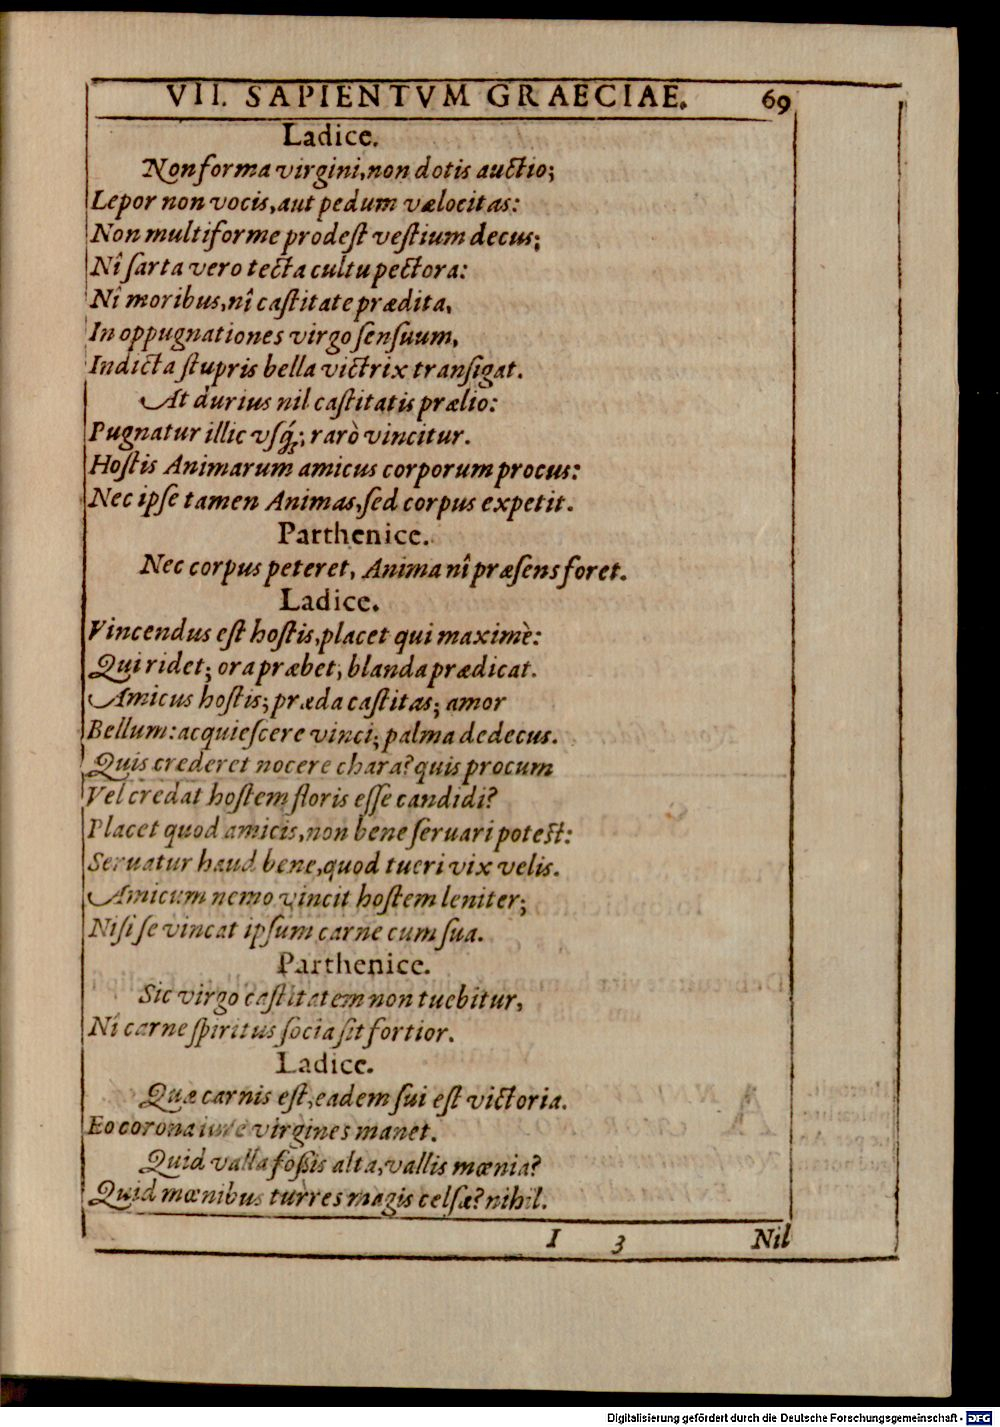 VII. SAPIENTVM GRAECIAE. 69
Ladice.
Non forma virgini, non dotis auctio;
Lepor non vocis, aut pedum vælocitas:
Non multiforme prodeſt veſtium decus;
Nî ſarta vero tecta cultu pectora:
Ni moribus, nî caſtitate prædita,
In oppugnationes virgo ſenſuum,
Indicta ſtupris bella victrix tranſigat.
At durius nil caſtitatis prælio:
Pugnatur illic vſq́;; rarò vincitur.
Hoſtis Animarum amicus corporum procus:
Nec ipſe tamen Animas, ſed corpus expetit.
Parthenice.
Nec corpus peteret, Anima nî præſens foret.
Ladice.
Vincendus eſt hoſtis, placet qui maximè:
Qui ridet; ora præbet; blanda prædicat.
Amicus hoſtis; præda caſtitas; amor
Bellum: acquieſcere vinci; palma dedecus.
Quis crederet nocere chara? quis procum
Vel credat hoſtem floris eſſe candidi?
Placet quod amicis, non bene ſeruari poteſt:
Seruatur haud bene, quod tueri vix velis.
Amicum nemo vincit hoſtem leniter;
Niſi ſe vincat ipſum carne cum ſua.
Parthenice.
Sic virgo caſtitatem non tuebitur,
Nî carne ſpiritus ſocia ſit fortior.
Ladice.
Quæ carnis eſt, eadem ſui eſt victoria.
Eo corona virgines manet.
Quid valla foſſis alta, vallis mœnia?
Quid mœnibus turres magis celſæ? nihil.
I 3 Nil
Digitalisierung gefördert durch die Deutsche Forschungsgemeinschaft - DFG